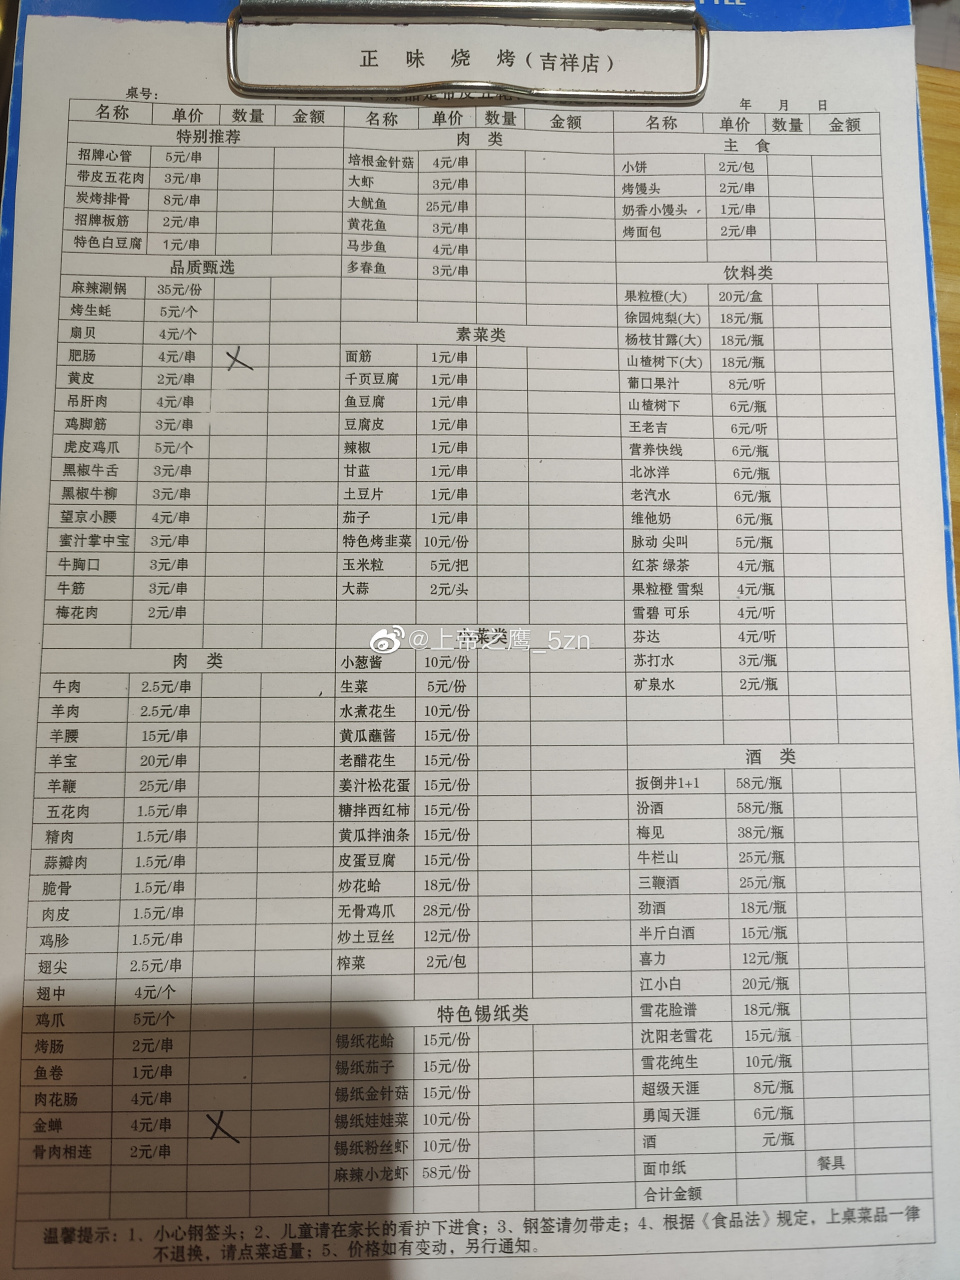 正 味 烧 烤(吉祥店)
桌号:
年 月 日
名称 单价 数量 金额
特别推荐
招牌心管 5元/串
带皮五花肉 3元/串
炭烤排骨 8元/串
招牌板筋 2元/串
特色白豆腐 1元/串
品质甄选
麻辣涮锅 35元/份
烤生蚝 5元/个
扇贝 4元/个
肥肠 4元/串
黄皮 2元/串
吊肝肉 4元/串
鸡脚筋 3元/串
虎皮鸡爪 5元/个
黑椒牛舌 3元/串
黑椒牛柳 3元/串
望京小腰 4元/串
蜜汁掌中宝 3元/串
牛胸口 3元/串
牛筋 3元/串
梅花肉 2元/串
肉 类
牛肉 2.5元/串
羊肉 2.5元/串
羊腰 15元/串
羊宝 20元/串
羊鞭 25元/串
五花肉 1.5元/串
精肉 1.5元/串
蒜瓣肉 1.5元/串
脆骨 1.5元/串
肉皮 1.5元/串
鸡胗 1.5元/串
翅尖 2.5元/串
翅中 4元/个
鸡爪 5元/个
烤肠 2元/串
鱼卷 1元/串
肉花肠 4元/串
金蝉 4元/串
骨肉相连 2元/串
名称 单价 数量 金额
肉 类
培根金针菇 4元/串
大虾 3元/串
大鱿鱼 25元/串
黄花鱼 3元/串
马步鱼 4元/串
多春鱼 3元/串
素菜类
面筋 1元/串
千页豆腐 1元/串
鱼豆腐 1元/串
豆腐皮 1元/串
辣椒 1元/串
甘蓝 1元/串
土豆片 1元/串
茄子 1元/串
特色烤韭菜 10元/份
玉米粒 5元/把
大蒜 2元/头
小菜类
小葱酱 10元/份
生菜 5元/份
水煮花生 10元/份
黄瓜蘸酱 15元/份
老醋花生 15元/份
姜汁松花蛋 15元/份
糖拌西红柿 15元/份
黄瓜拌油条 15元/份
皮蛋豆腐 15元/份
炒花蛤 18元/份
无骨鸡爪 28元/份
炒土豆丝 12元/份
榨菜 2元/包
特色锡纸类
锡纸花蛤 15元/份
锡纸茄子 15元/份
锡纸金针菇 15元/份
锡纸娃娃菜 10元/份
锡纸粉丝虾 10元/份
麻辣小龙虾 58元/份
名称 单价 数量 金额
主 食
小饼 2元/包
烤馒头 2元/串
奶香小馒头 1元/串
烤面包 2元/串
饮料类
果粒橙(大) 20元/盒
徐园炖梨(大) 18元/瓶
杨枝甘露(大) 18元/瓶
山楂树下(大) 18元/瓶
葡口果汁 8元/听
山楂树下 6元/瓶
王老吉 6元/听
营养快线 6元/瓶
北冰洋 6元/瓶
老汽水 6元/瓶
维他奶 6元/瓶
脉动 尖叫 5元/瓶
红茶 绿茶 4元/瓶
果粒橙 雪梨 4元/瓶
雪碧 可乐 4元/听
芬达 4元/听
苏打水 3元/瓶
矿泉水 2元/瓶
酒 类
扳倒井1+1 58元/瓶
汾酒 58元/瓶
梅见 38元/瓶
牛栏山 25元/瓶
三鞭酒 25元/瓶
劲酒 18元/瓶
半斤白酒 15元/瓶
喜力 12元/瓶
江小白 20元/瓶
雪花脸谱 18元/瓶
沈阳老雪花 15元/瓶
雪花纯生 10元/瓶
超级天涯 8元/瓶
勇闯天涯 6元/瓶
酒 元/瓶
面巾纸 餐具
合计金额
温馨提示:1、小心钢签头;2、儿童请在家长的看护下进食;3、钢签请勿带走;4、根据《食品法》规定,上桌菜品一律
不退换,请点菜适量;5、价格如有变动,另行通知。
@上帝之鹰_5zn